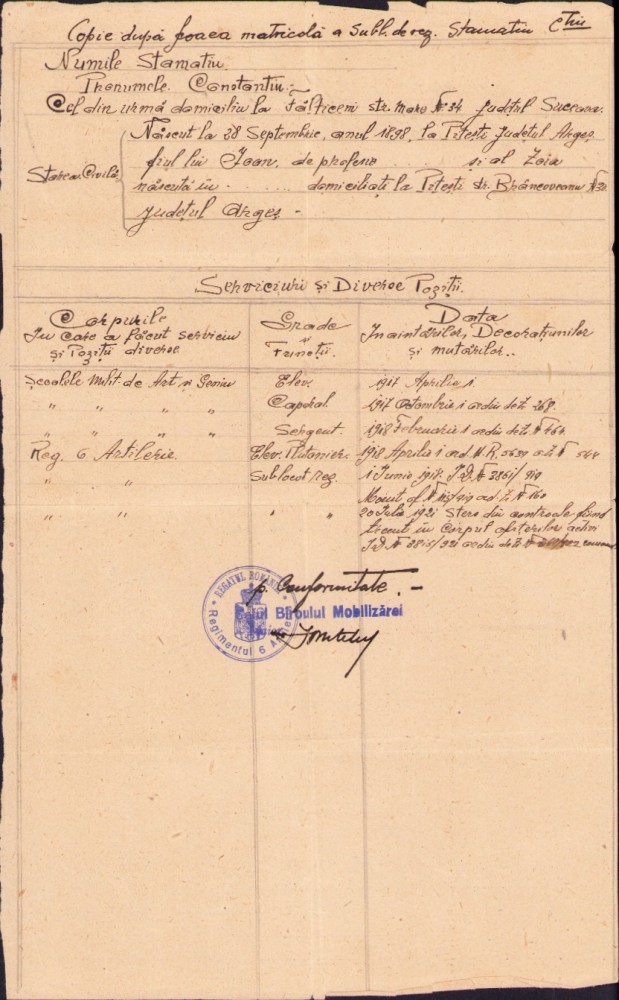 Copie după foaea matricolă a Subl. de rez. Stamatiu Ctin
Numile Stamatiu
Prenumele Constantin.-
Cel din urmă domiciliu la Fălticeni str. Mare № 34 județul Suceava.
Starea Civilă
Născut la 28 Septembrie, anul 1898, la Pitești județul Argeș
fiul lui Ioan, de profesie ..... și al Zoia
născută în ..... domiciliați la Pitești str. Brâncoveanu №
județul Argeș -
Serviciuri și Diverse Poziții.
Corpurile
În care a făcut serviciu
și Poziții diverse
Grade
și
Funcții.
Data
Înaintărilor, Decorațiunilor
și mutărilor..
Școalele Milit. de Art și Geniu Elev. 1917 Aprilie 1
" " " " Caporal. 1917 Octombrie 1 ordin de Z. 268.
" " " " Sergent. 1918 Februarie 1 ordin de Z. №
Reg. 6 Artilerie. Elev. Plutonier. 1918 Aprilie 1 ord. M.R. 5639 Z. №
" " Sublocot. reg. 1 Iunie, I.D. № 3861/919
№ 115/919 ord Z. № 160
" " " " 20 Iulie 1921 Sters din controale fiind
trecut în Corpul ofițerilor activi
I.D. № 3815/921 ordin de Z. №
p. Conformitate.-
Șeful Biroului Mobilizărei
REGATUL ROMÂNIEI
Regimentul 6 Artilerie